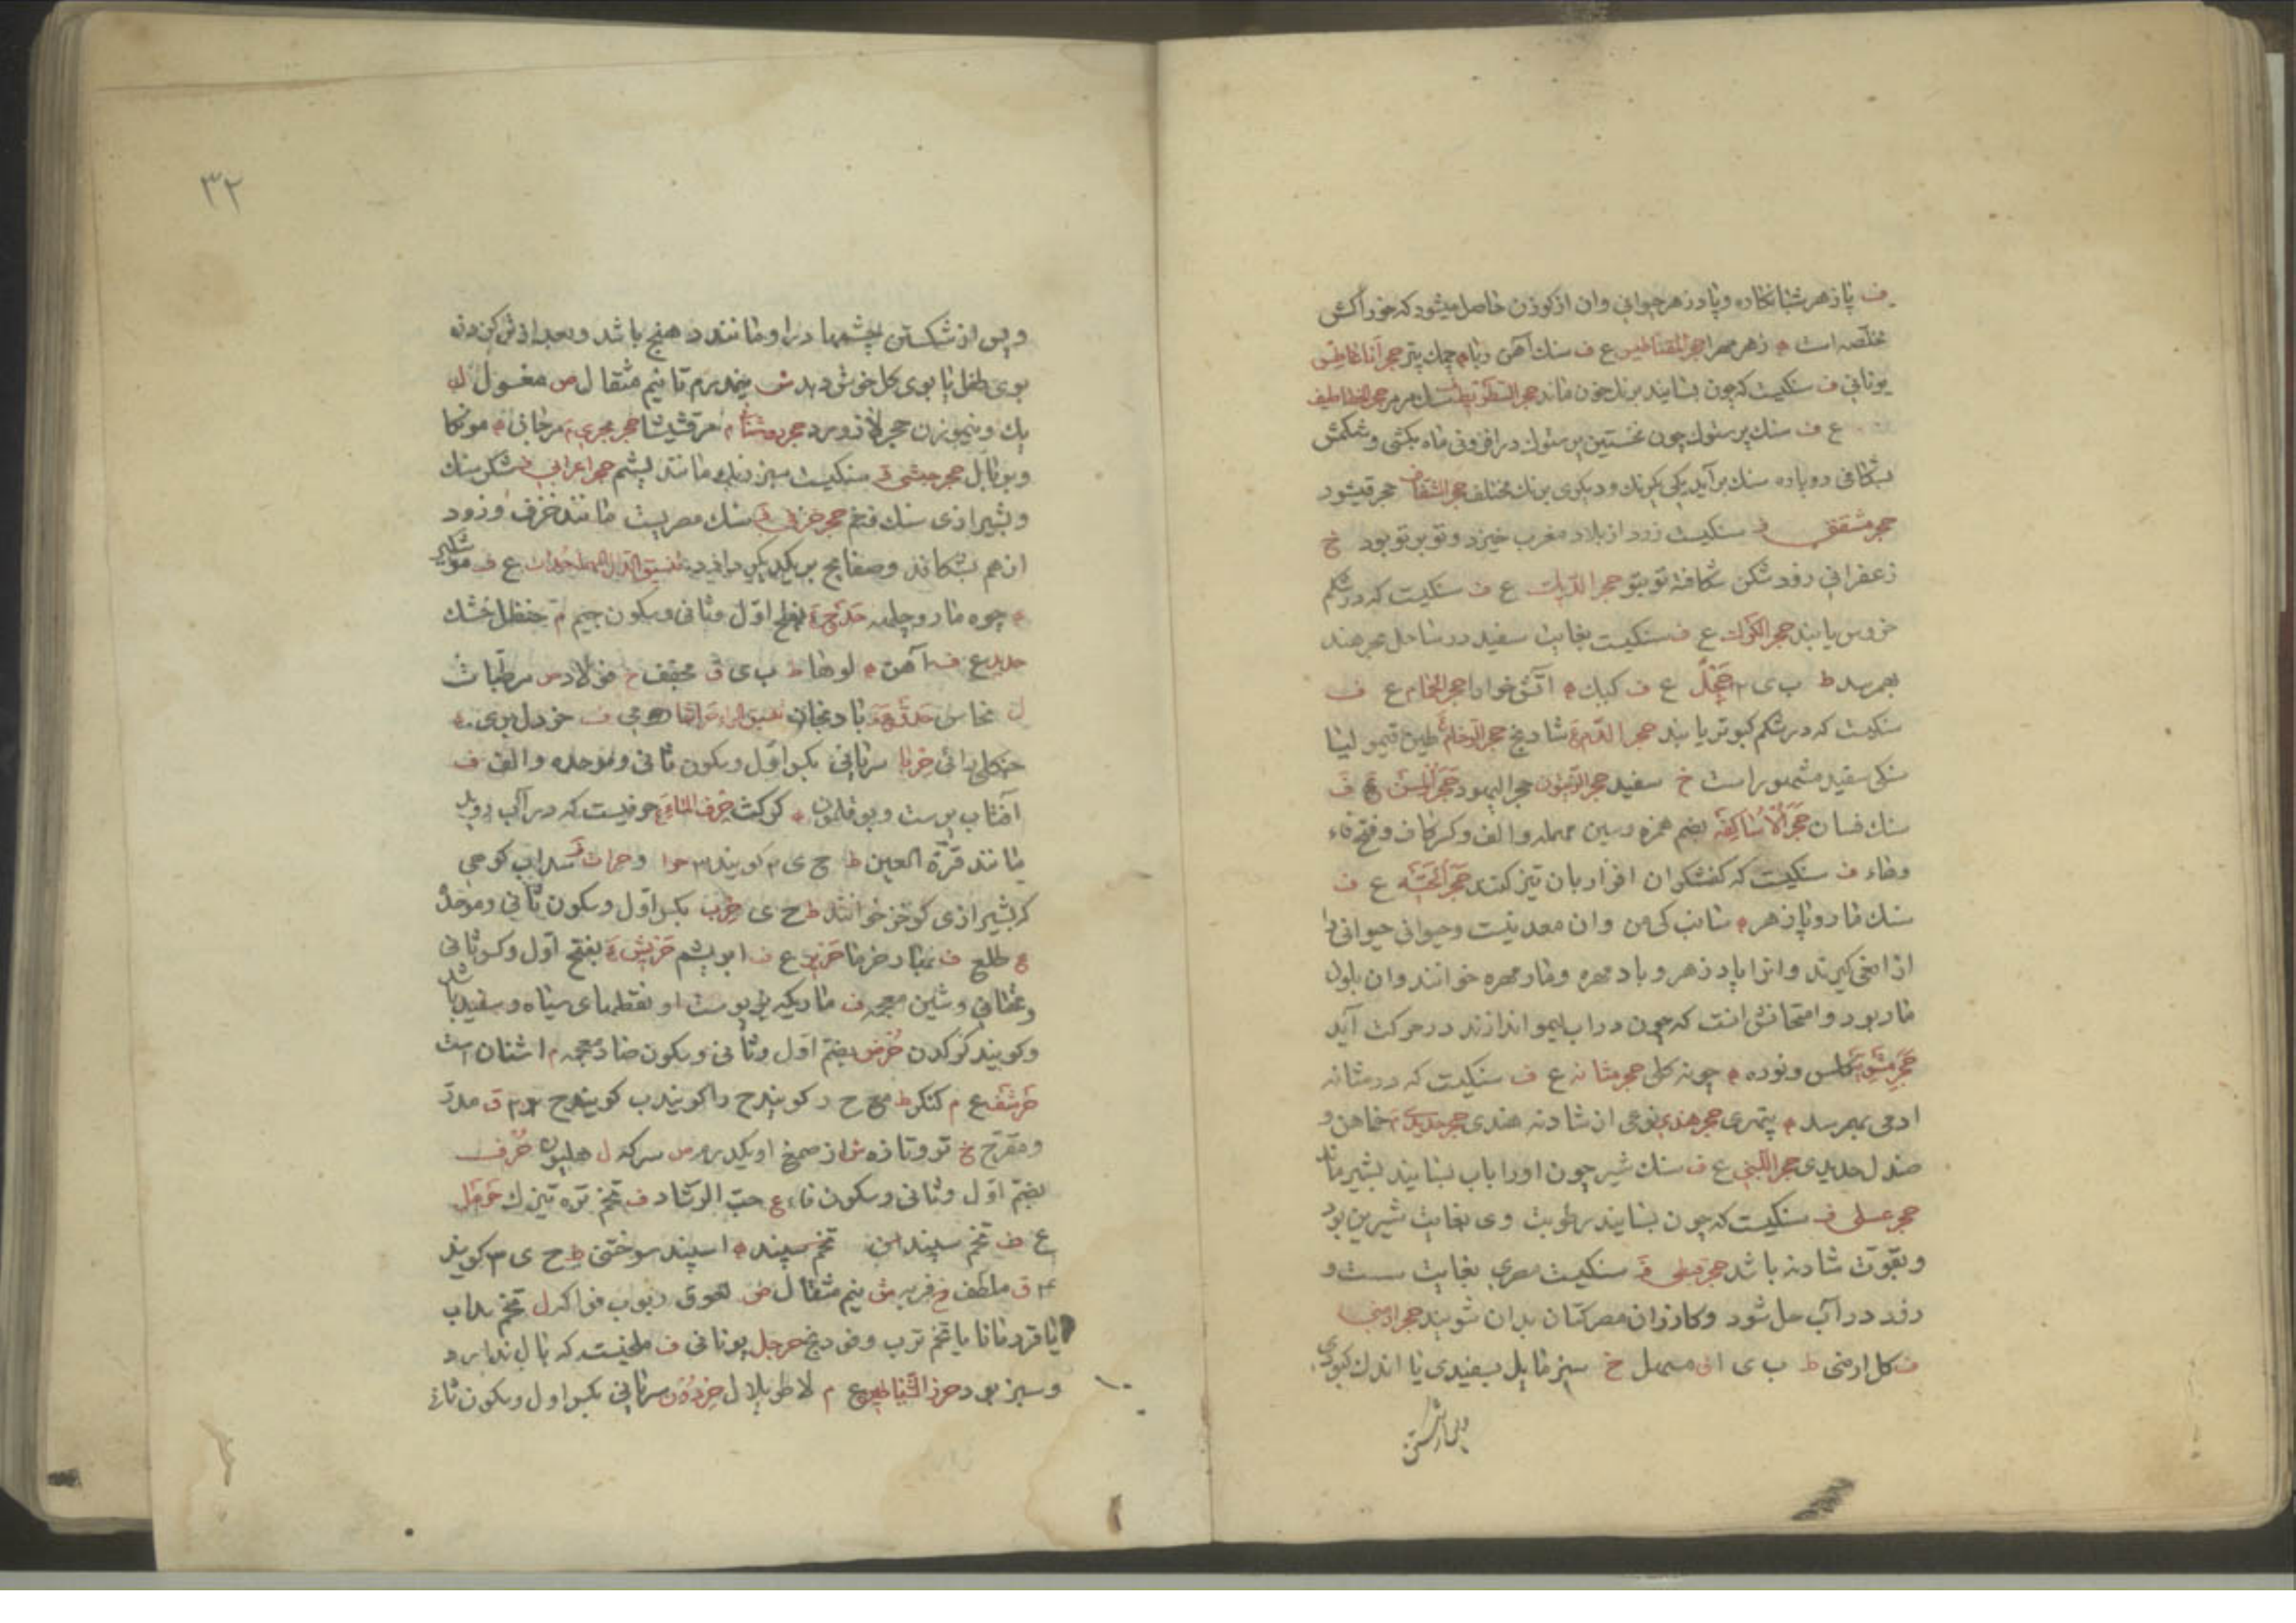 ف پازهر شبانکاره و پادزهر حیوانی وان از کوزن حاصل میشود که خوراکش
مخلصه است ه زهر مهرا حجر المقناطیس ع ف سنك آهن ربا ه چمك پتر حجر اناغاطیس
یونانی ف سنکیست که چون بسایند برنك خون ماند حجر سنك مرمر حجر الخطاطیف
ع ف سنك پرستوك چون نخستین پرستوك در افزونی ماه بکشی و شکمش
بشکافی دوپاره سنك برآید یکی یکرنك و دیکری برنك مختلف حجر حجر قیشور
حجر مشقق ف سنکیست زرد از بلاد مغرب خیزد و توبرتو بود خ
زعفرانی زود شکن شکافته توبتو حجر الدیك ع ف سنکیست که در شکم
خروس یابند حجر الکرك ع ف سنکیست بغایت سفید در ساحل بحر هند
بهمرسد ط ب ی ۲ حجل ع ف کبك ه آتش خوار حجر الحمام ع ف
سنکیست که در شکم کبوتر یابند حجر الدم ع شادنج حجر الرخام طین قیمولیا
سنکی سفید مشهور است خ سفید حجر الزیتون حجر الیهود حجر المسن ع ف
سنك فسان حجر الاساکفه بضم همزه و سین مهمله و الف و کسر کاف و فتح فاء
وهاء ف سنکیست که کفشکران افزار بان تیز کنند حجر الحیه ع ف
سنك مار و پازهر ه سانپ کی من وان معدنیست و حیوانی حیوانی را
از افعی کیرند و انرا پادزهر و بادمهره و مارمهره خوانند وان بلون
مار بود و امتحانش انست که چون در اب لیمو اندازند در حرکت آید
حجر مشوی کلس و نوره ه چونه کلی حجر مثانه ع ف سنکیست که در مثانه
ادمی بهمرسد ه پتهری حجر هندی نوعی از شادنه هندی حجر حدیدی م خماهن و
صندل حدیدی حجر اللبنی ع ف سنك شیر چون اورا باب بسایند بشیر ماند
حجر عسلی ف سنکیست که چون بسایند رطوبت وی بغایت شیرین بود
و بقوت شادنه باشد حجر قبطی ف سنکیست مصری بغایت سست و
زود در آب حل شود و کازران مصر کتان بدان شویند حجر ارمنی
ف کل ارمنی ط ب ی ا ق مسهل خ سبز مایل بسفیدی یا اندك کبودی
وپس از شکستن
۳۲
وپس از شکستن چشمها در او مانند دهنج باشد و بعد از
بوی طفل یا بوی کل خوش دهد ش نیمدرم تا نیم مثقال ص مغسول ل
یك و نیم وزن حجر لاژورد حجر روشنا م مرقشیشا حجر بحری م مرجانی ه مونکا
حجر حبشی ف سنکیست سبز رنك مانند یشم حجر اعرابی ف شکر سنك
وبشیرازی سنك فتخم حجر خزفی ف سنك مصریست مانند خزف و زود
ازهم بشکافد و صفایح بر یکدیکر ع ف
ه چوه مار و چلهه حدج بفتح اول و ثانی و سکون جیم م حنظل خشك
حدید ع ف آهن ه لوها ط ب ی ق مجفف خ فولاد ص مرطبات
ل نحاس حدق بادنجان ف خردل بری
حربا سریانی بکسر اول و سکون ثانی و موحده و الف ف
آفتاب پرست و بوقلمون ه کرکت حرف الماء ع حرفیست که در آب روید
مانند قرة العین ط ح ی ۳ کویند ۳ سداب کوهی
که بشیرازی کوخز خوانند ط ح ی حرب بکسر اول و سکون ثانی و موحده
ع طلع ف بهار خرما حریر ع ف ابریشم حریش بفتح اول و کسر ثانی
و تحتانی و شین معجمه ف ماریکه بر پوست او نقطهای سیاه و سفید باشد
و کویند کرکدن حرض بضم اول و ثانی و سکون ضاد معجمه م اشنان است
حرشف ع م کنکر ط ح ر کویند ح را کویند ب کویند ق مدر
و مفرح خ تر و تازه ش از صمغ او یکدرم ص سرکه ل هلیون حرف
بضم اول و ثانی و سکون فاء ع حب الرشاد ف تخم تره تیزك حرمل
ع ف تخم سپندان تخم سپند ه اسپند سوختنی ط ح ی ۳ کویند
۴ ق ملطف خ فربه ش نیم مثقال ص ربوب فواکه ل تخم سداب
یا قردمانا یا تخم ترب و فودنج حرجل یونانی ف ملخیست که بال ندارد
و سبز بود حرز الشیاطین ع م لاطو بلال حردون سریانی بکسر اول و سکون ثانی